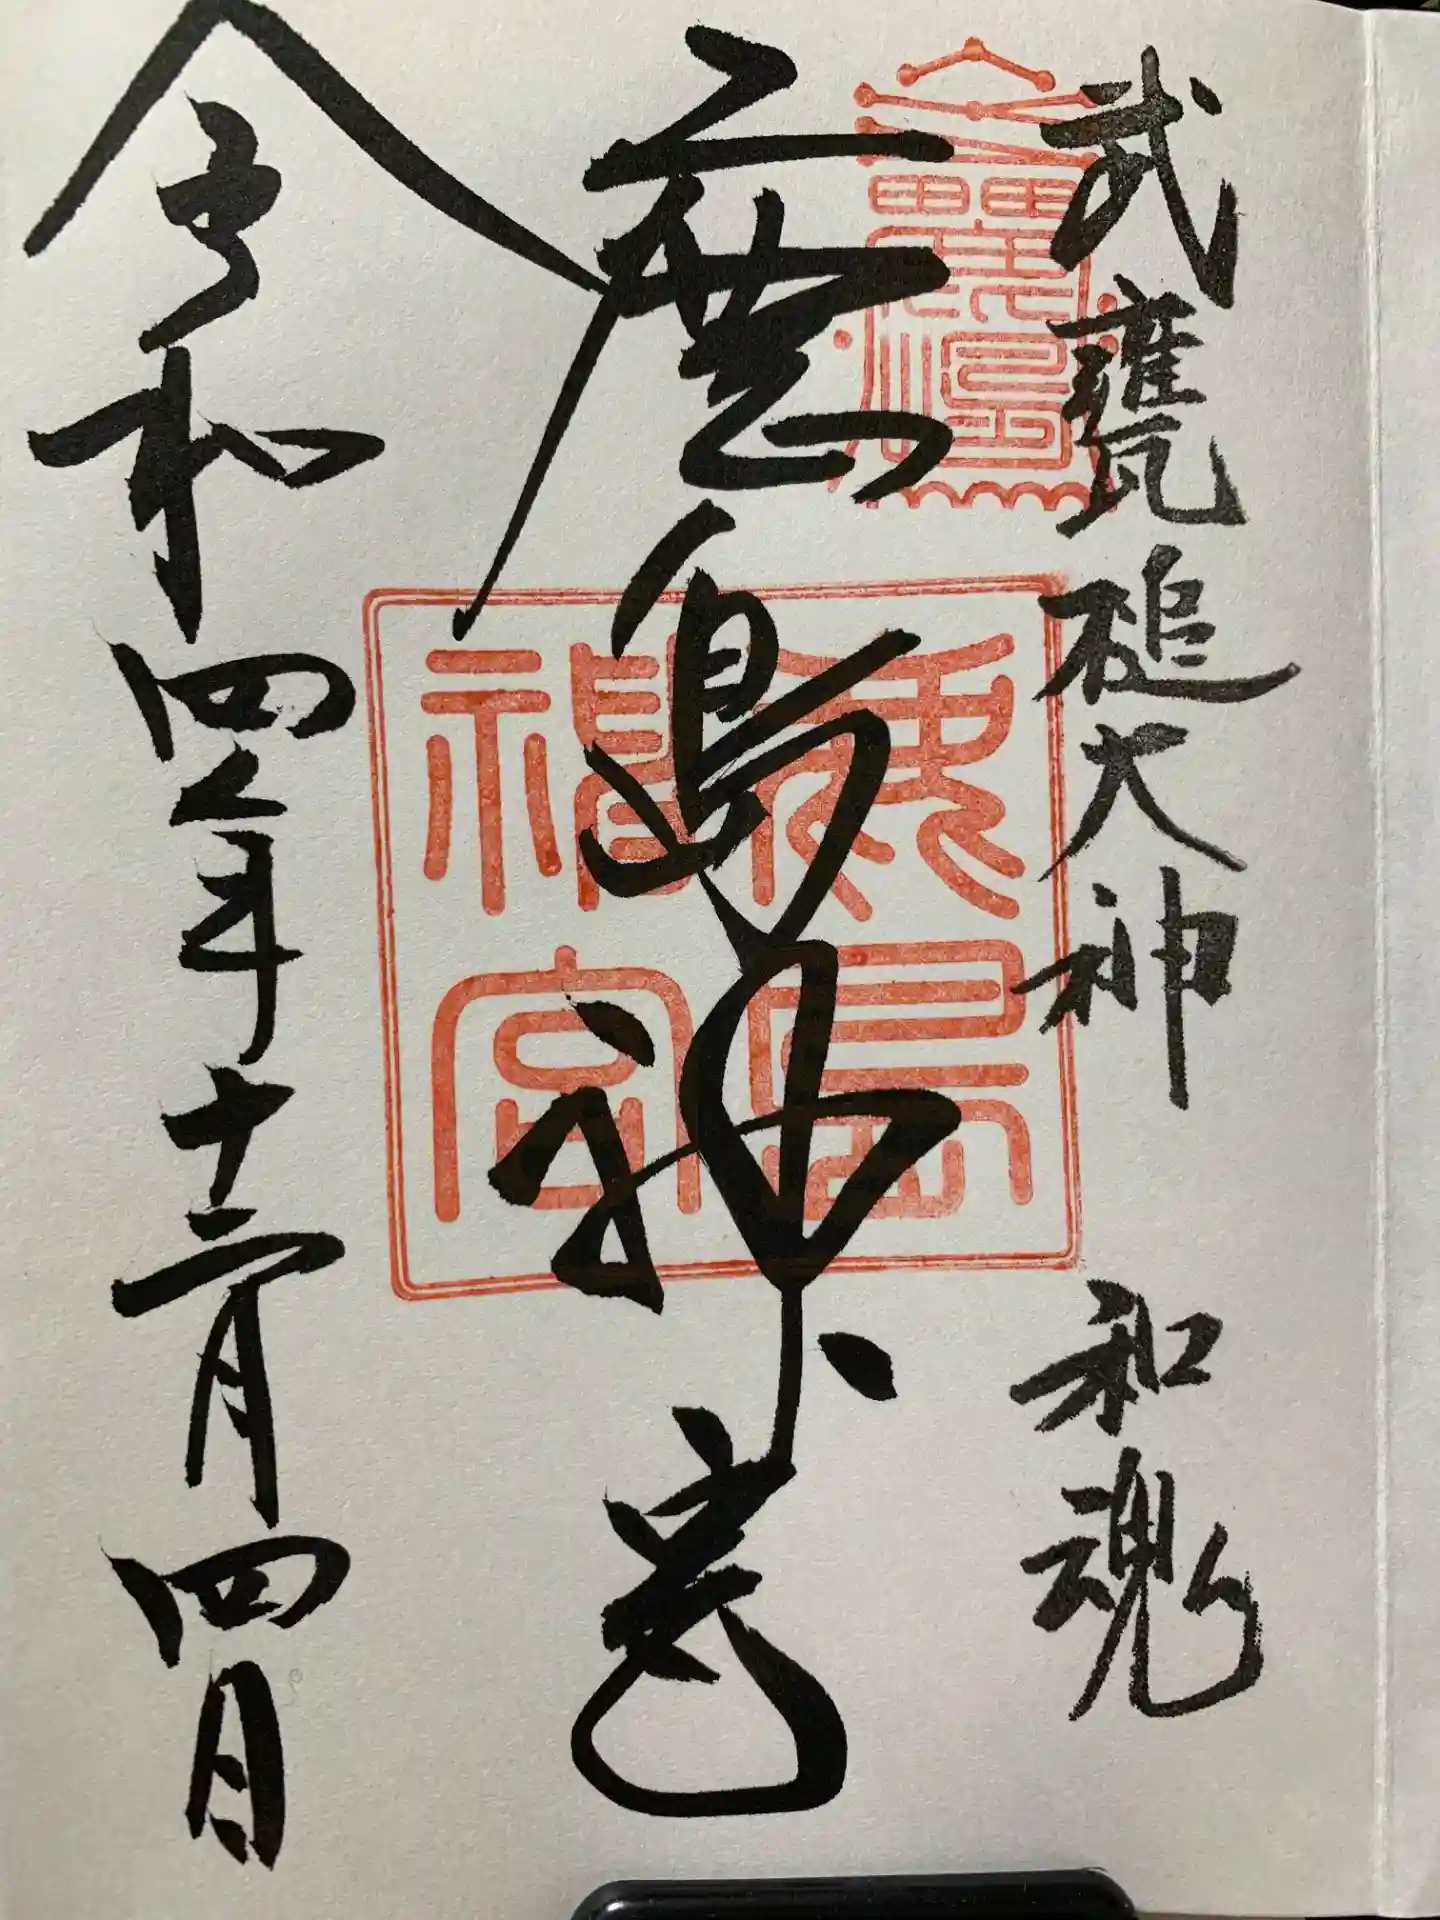 武甕槌大神 和魂
鹿島神宮
令和四年十二月四日
鹿島
神宮